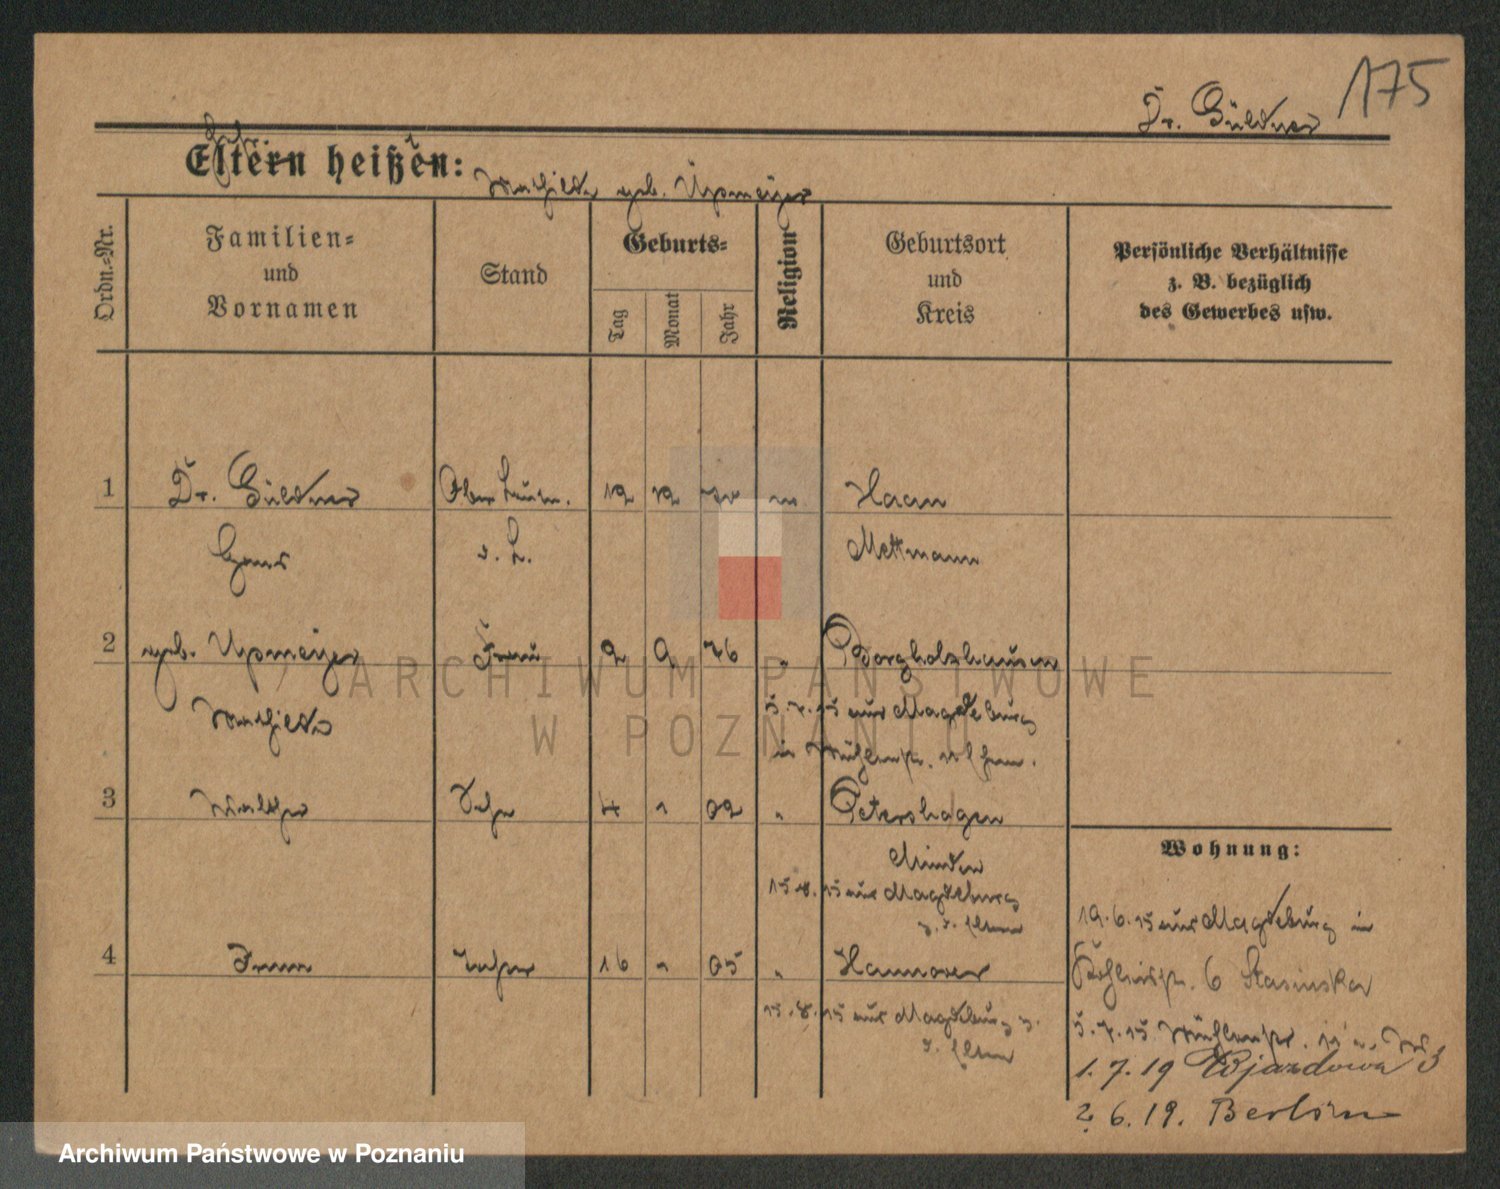 175
Dr. Güldner
Eltern heißen:
Mathilde geb. Upmeijer
Ordn.=Nr.
Familien=
und
Vornamen
Stand
Geburts=
Tag
Monat
Jahr
Religion
Geburtsort
und
Kreis
Persönliche Verhältnisse
z. B. bezüglich
des Gewerbes usw.
1 Dr. Güldner 12 12 Haan
Hans d. L. Mettmann
2 geb. Upmeijer Frau 2 9 76 " Borgholzhausen
Mathilde 5.7.15 aus Magdeburg
in
3 Walther Sohn 4 1 02 " Petershagen
Minden
15.8.15 aus Magdeburg
z. d. Eltern
4 16 05 " Hannover
15.8.15 aus Magdeburg z.
d. Eltern
Wohnung:
19.6.15 aus Magdeburg in
6 Stasinska
5.7.15
1.7.19 Wjazdowa 3
2.6.19. Berlin
ARCHIWUM PAŃSTWOWE
W POZNANIU
Archiwum Państwowe w Poznaniu